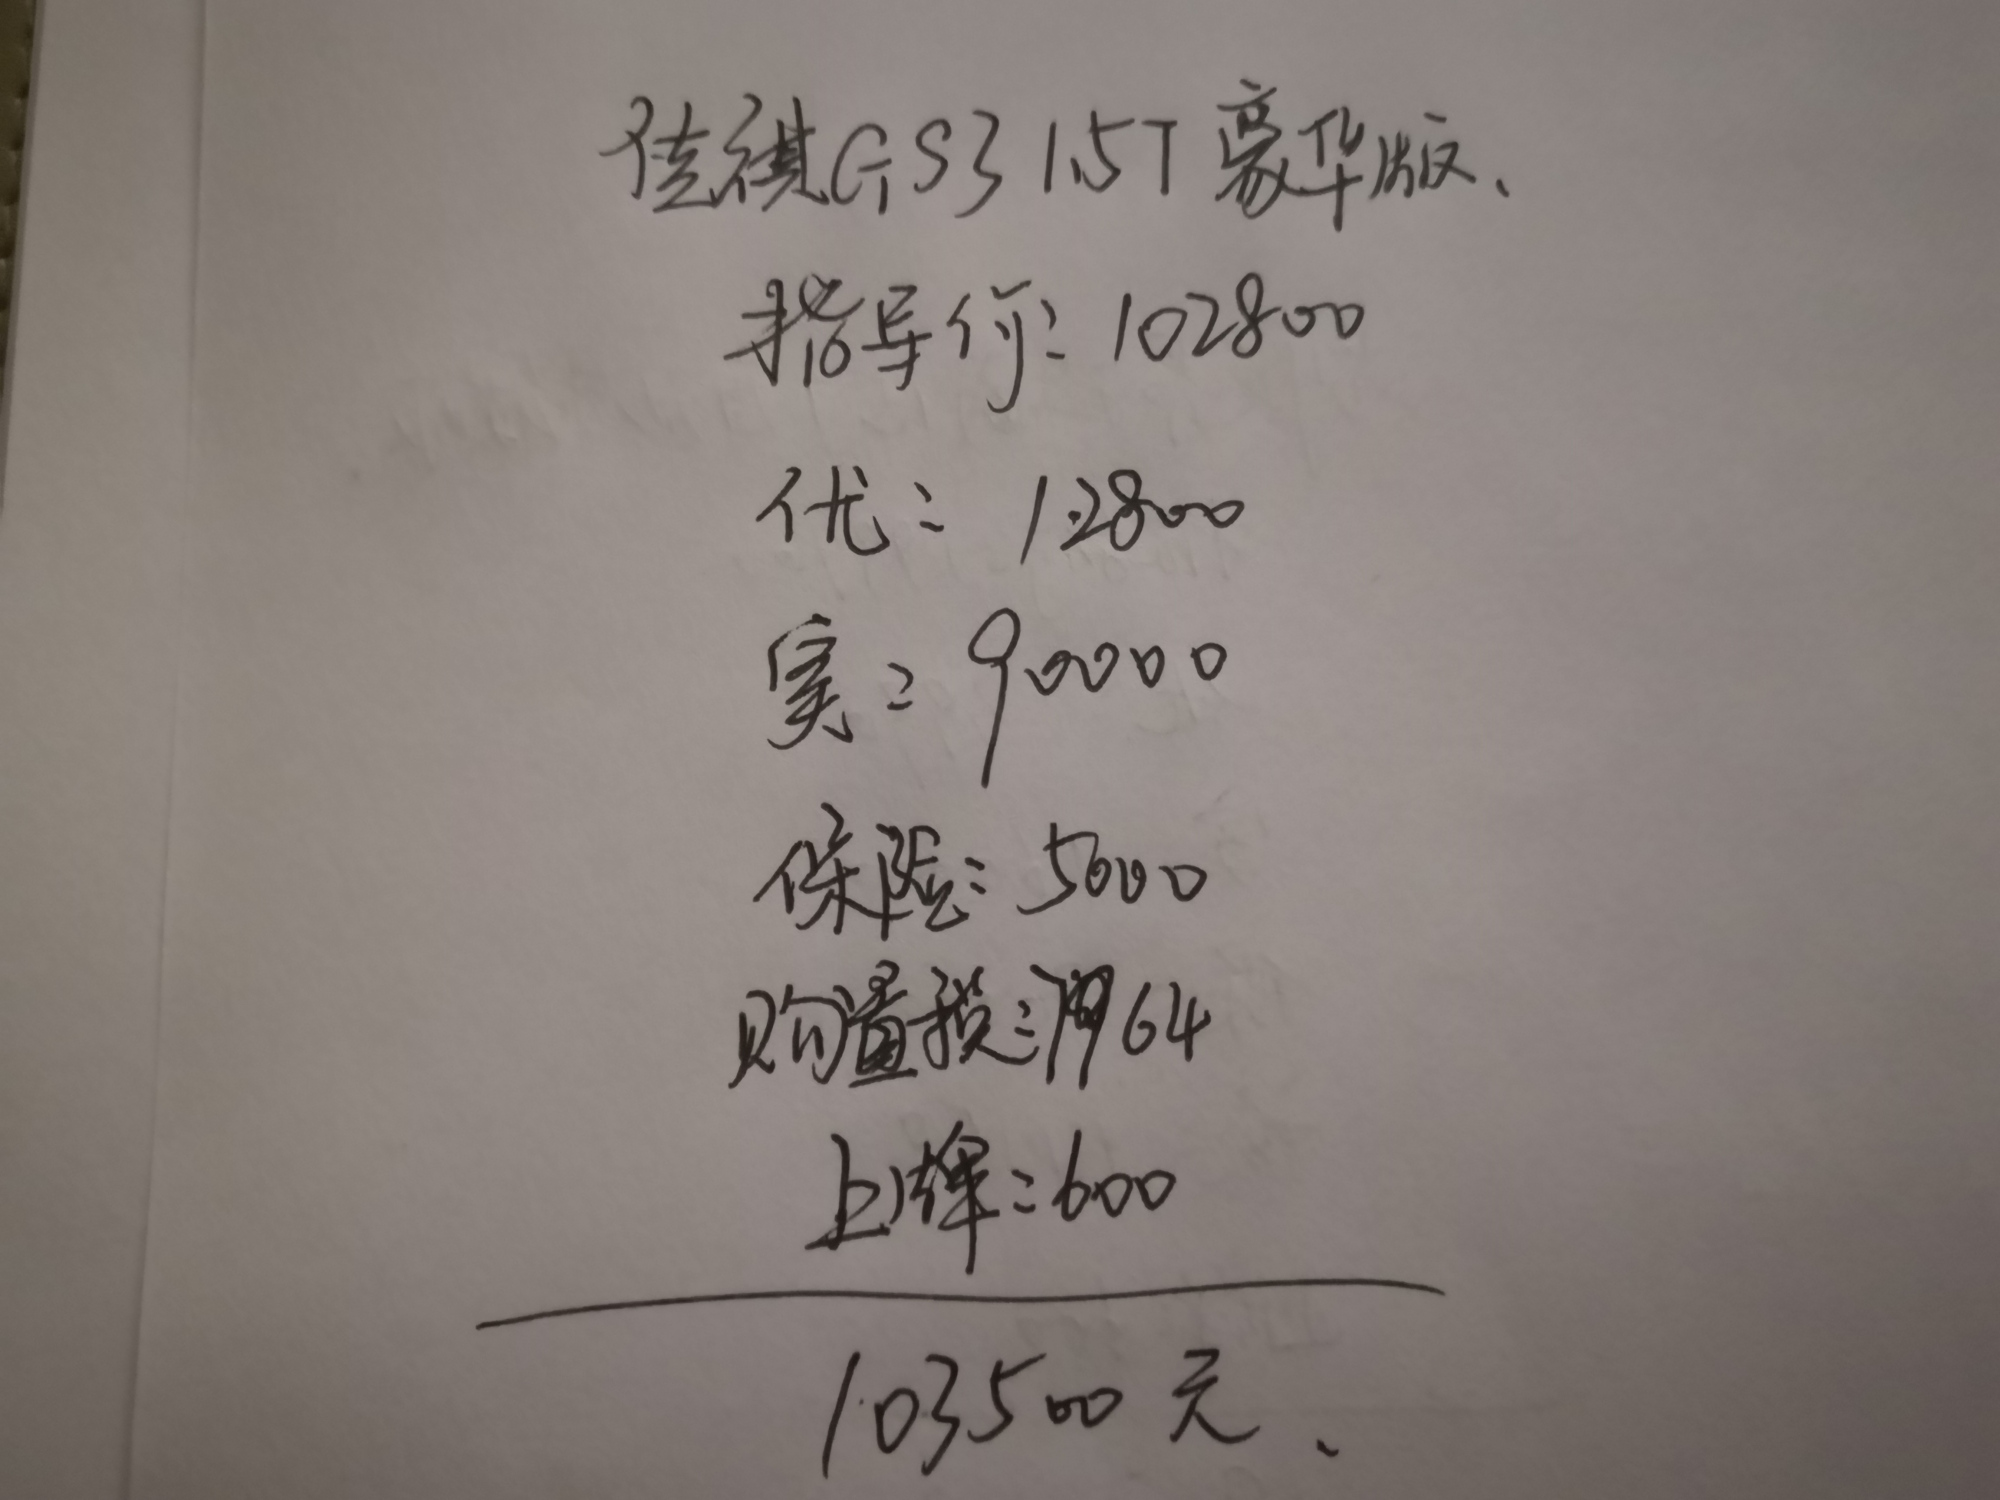 佳祺GS3 1.5T豪华版、
指导价:102800
优:12800
实:90000
保险:5000
购置税:7964
上牌:600
103500元、